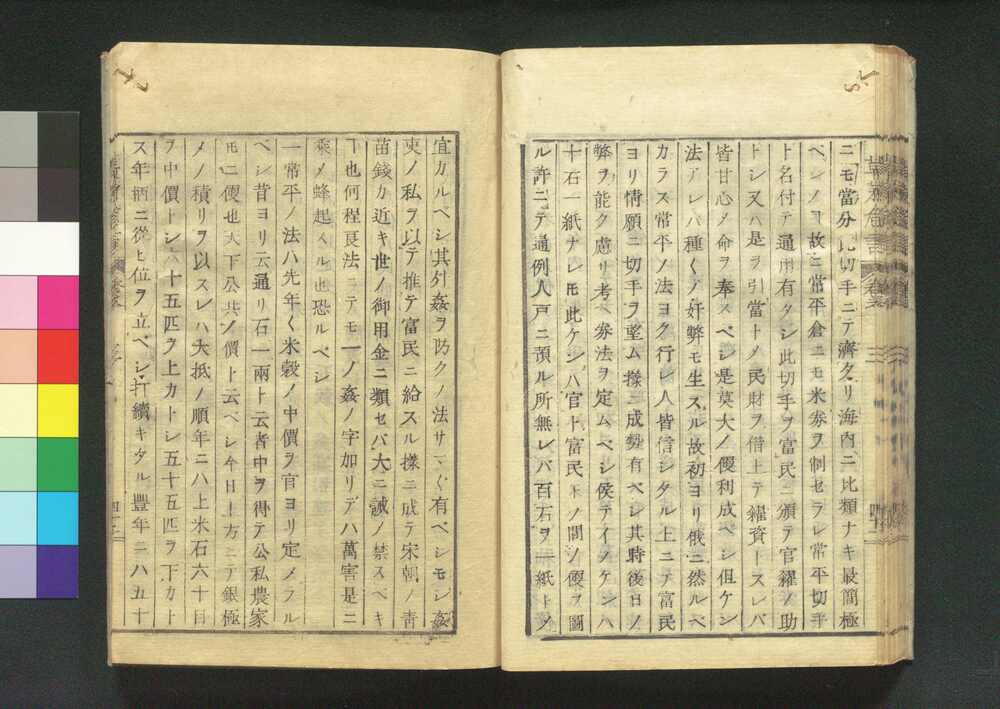 ニモ當分此切手ニテ濟タリ海內ニ比類ナキ最簡極
ベシノヨ故ニ常平倉ニモ米劵ヲ制セラレ常平切手
ト名付テ通用有タシ此切手ヲ富民ニ頒テ官糴ノ助
トシ又ハ是ヲ引當トノ民財ヲ借上テ糴資トスレバ
皆甘心メ命ヲ奉スベシ是莫大ノ便利成ベシ但ケン
法アレバ種〱ノ奸弊モ生スル故初ヨリ俄ニ然ルベ
カラス常平ノ法ヨク行レ人皆信シタル上ニテ富民
ヨリ情願ニ切手ヲ望ム樣ニ成勢有ベシ其時後日ノ
弊ヲ能ク慮リ考ヘ劵法ヲ定ムベシ侯テイノケンハ
十石一紙ナレモ此ケンハ官ト富民トノ間ノ便ヲ圖
ル許ニテ通例人戸ニ預ル所無レバ百石ヲ一紙トメ
宜カルベシ其外姦ヲ防クノ法サマ〱有ベシモシ姦
吏ノ私ヲ以テ推テ富民ニ給スル樣ニ成テ宋朝ノ靑
苗錢カ近キ世ノ御用金ニ類セバ大ニ誡ノ禁スベキ
ヿ也何程良法ニテモ一ノ姦ノ字加リデハ萬害是ニ
乘メ蜂起スル也恐ルベシ
一常平ノ法ハ先年〱米穀ノ中價ヲ官ヨリ定メラル
ベシ昔ヨリ云通リ石一兩ト云者中ヲ得テ公私農家
モニ便也天下公共ノ價ト云ベシ今日上方ニテ銀極
メノ積リヲ以スレハ大抵ノ順年ニハ上米石六十目
ヲ中價トシ六十五匹ヲ上カトシ五十五匹ヲ下カト
ス年柄ニ從ヒ位ヲ立ベシ打續キタル豐年ニハ五十